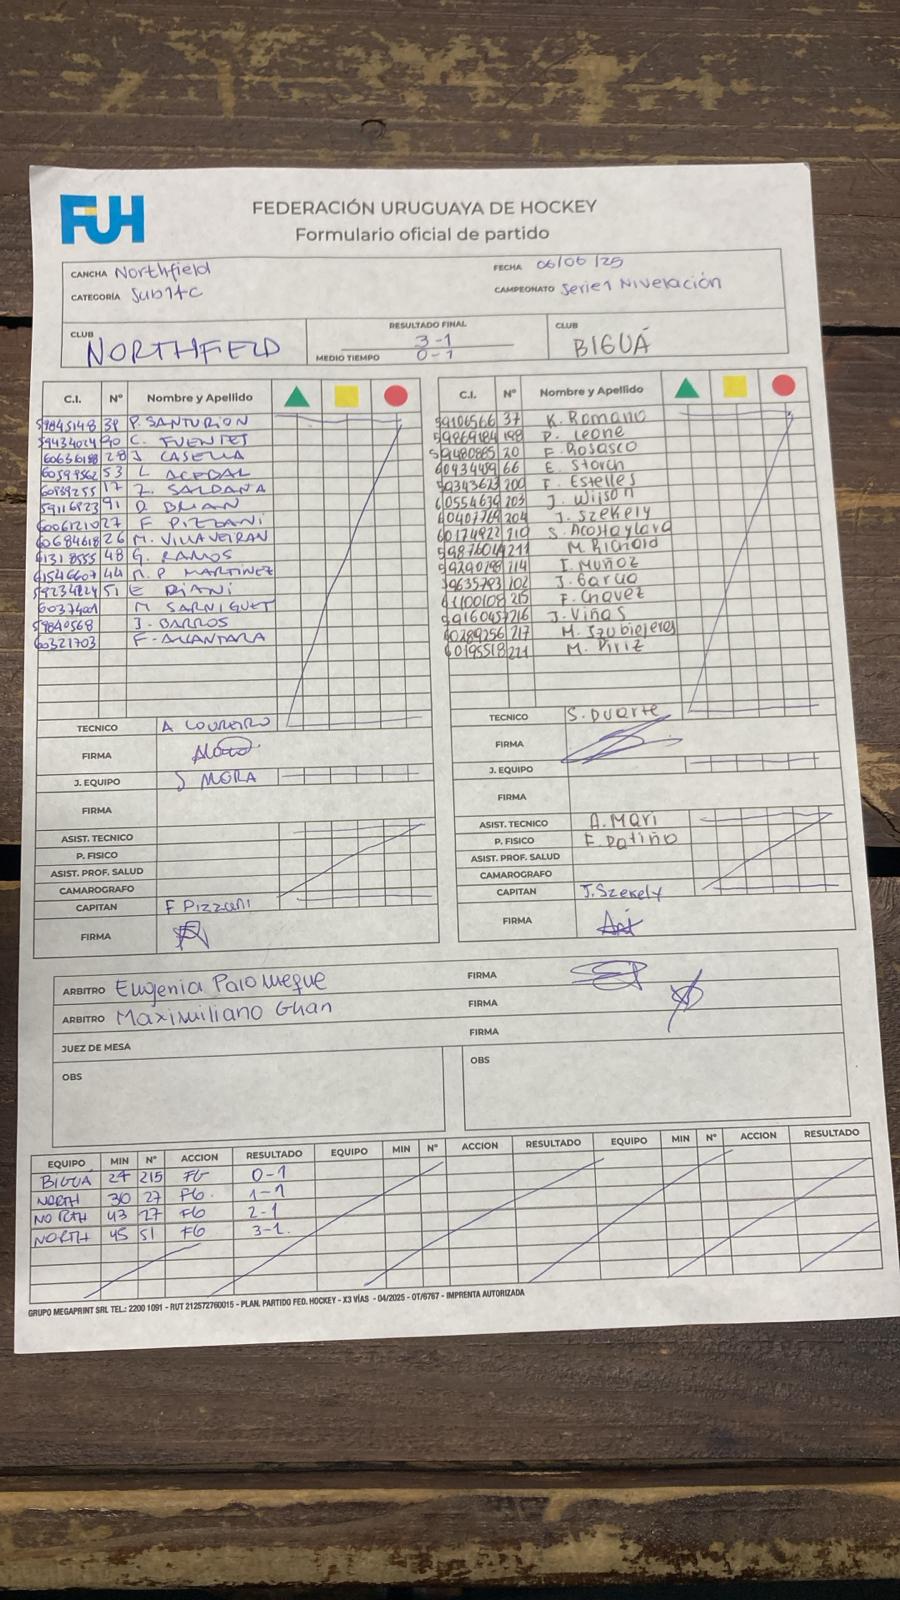 FUH
FEDERACIÓN URUGUAYA DE HOCKEY
Formulario oficial de partido
CANCHA Northfield FECHA 06/06/25
CATEGORÍA Sub14C CAMPEONATO Serie1 Nivelación
CLUB NORTHFIELD RESULTADO FINAL 3-1 CLUB BIGUÁ
MEDIO TIEMPO 0-1
C.I. Nº Nombre y Apellido
P. SANTURION
C. FUENTES
28 J CASELLA
60599562 53 L ACEDAL
60939255 17 Z. SALDAÑA
59116823 91 D BRIAN
27 F PIZZANI
60684618 26 M. VILLAVEIRAN
61318555 48 G. RAMOS
61546607 44 M. P MARTINEZ
51 E DIANI
M SARNIGUET
59840568 J. BARROS
60321703 F. ALCANTARA
TECNICO A LOUREIRO
FIRMA
J. EQUIPO J MORA
FIRMA
ASIST. TECNICO
P. FISICO
ASIST. PROF. SALUD
CAMAROGRAFO
CAPITAN F Pizzani
FIRMA
C.I. Nº Nombre y Apellido
59106566 37 K. Romano
198 P. Leone
59480885 20 F. Rosasco
60434489 66 E. Storch
200 F. Estelles
60554639 203 J. Wilson
204 J. Szekely
60174922 210 S. Acostaylara
211 M. Richard
214 I. Muñoz
102 J. Garua
215 F. Chavez
216 J. Viñas
60289256 217 M. Izubiejeres
60195518 221 M. Piriz
TECNICO S. Duarte
FIRMA
J. EQUIPO
FIRMA
ASIST. TECNICO A. Mari
P. FISICO F. Patiño
ASIST. PROF. SALUD
CAMAROGRAFO
CAPITAN J. Szekely
FIRMA
ARBITRO Eugenia Palomeque FIRMA
ARBITRO Maximiliano FIRMA
JUEZ DE MESA FIRMA
OBS OBS
EQUIPO MIN Nº ACCION RESULTADO EQUIPO MIN Nº ACCION RESULTADO EQUIPO MIN Nº ACCION RESULTADO
BIGUA 27 215 FG 0-1
NORTH 30 27 FG. 1-1
NORTH 43 27 FG 2-1
NORTH 45 51 FG 3-1.
GRUPO MEGAPRINT SRL TEL.: 2200 1091 - RUT 212572760015 - PLAN. PARTIDO FED. HOCKEY - X3 VÍAS - 04/2025 - OT/6767 - IMPRENTA AUTORIZADA